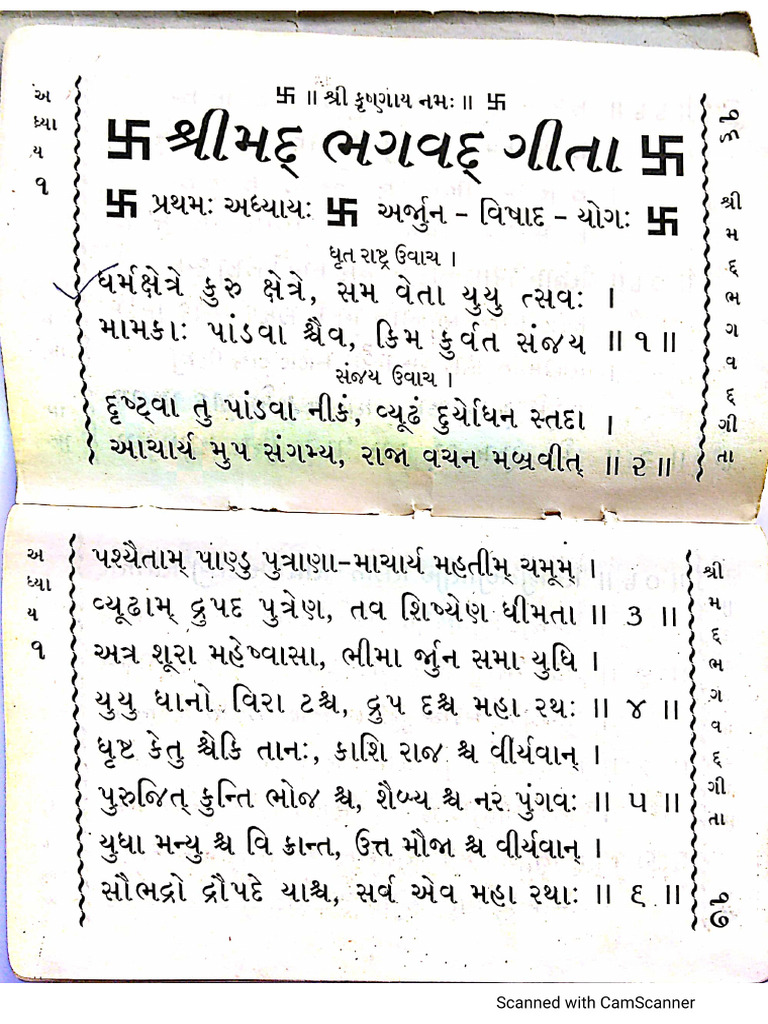 卐 ॥ શ્રી કૃષ્ણાય નમઃ ॥ 卐
卐 શ્રીમદ્ ભગવદ્ ગીતા 卐
卐 પ્રથમઃ અધ્યાયઃ 卐 અર્જુન - વિષાદ - યોગઃ 卐
ધૃત રાષ્ટ્ર ઉવાચ ।
ધર્મક્ષેત્રે કુરુ ક્ષેત્રે, સમ વેતા યુયુ ત્સવઃ ।
મામકાઃ પાંડવા શ્ચૈવ, કિમ કુર્વત સંજય ॥ ૧ ॥
સંજય ઉવાચ ।
દૃષ્ટ્વા તુ પાંડવા નીકં, વ્યૂઢં દુર્યોધન સ્તદા ।
આચાર્ય મુપ સંગમ્ય, રાજા વચન મબ્રવીત્ ॥ ૨ ॥
અધ્યાય ૧
શ્રીમદ્ભગવદ્ગીતા
૧૬
પશ્યૈતામ્ પાણ્ડુ પુત્રાણા-માચાર્ય મહતીમ્ ચમૂમ્ ।
વ્યૂઢામ્ દ્રુપદ પુત્રેણ, તવ શિષ્યેણ ધીમતા ॥ ૩ ॥
અત્ર શૂરા મહેષ્વાસા, ભીમા ર્જુન સમા યુધિ ।
યુયુ ધાનો વિરા ટશ્ચ, દ્રુપ દશ્ચ મહા રથઃ ॥ ૪ ॥
ધૃષ્ટ કેતુ શ્ચેકિ તાનઃ, કાશિ રાજ શ્ચ વીર્યવાન્ ।
પુરુજિત્ કુન્તિ ભોજ શ્ચ, શૈબ્ય શ્ચ નર પુંગવઃ ॥ ૫ ॥
યુધા મન્યુ શ્ચ વિ ક્રાન્ત, ઉત્ત મૌજા શ્ચ વીર્યવાન્ ।
સૌભદ્રો દ્રૌપદે યાશ્ચ, સર્વ એવ મહા રથાઃ ॥ ૬ ॥
અધ્યાય ૧
શ્રીમદ્ભગવદ્ગીતા
૧૭
Scanned with CamScanner